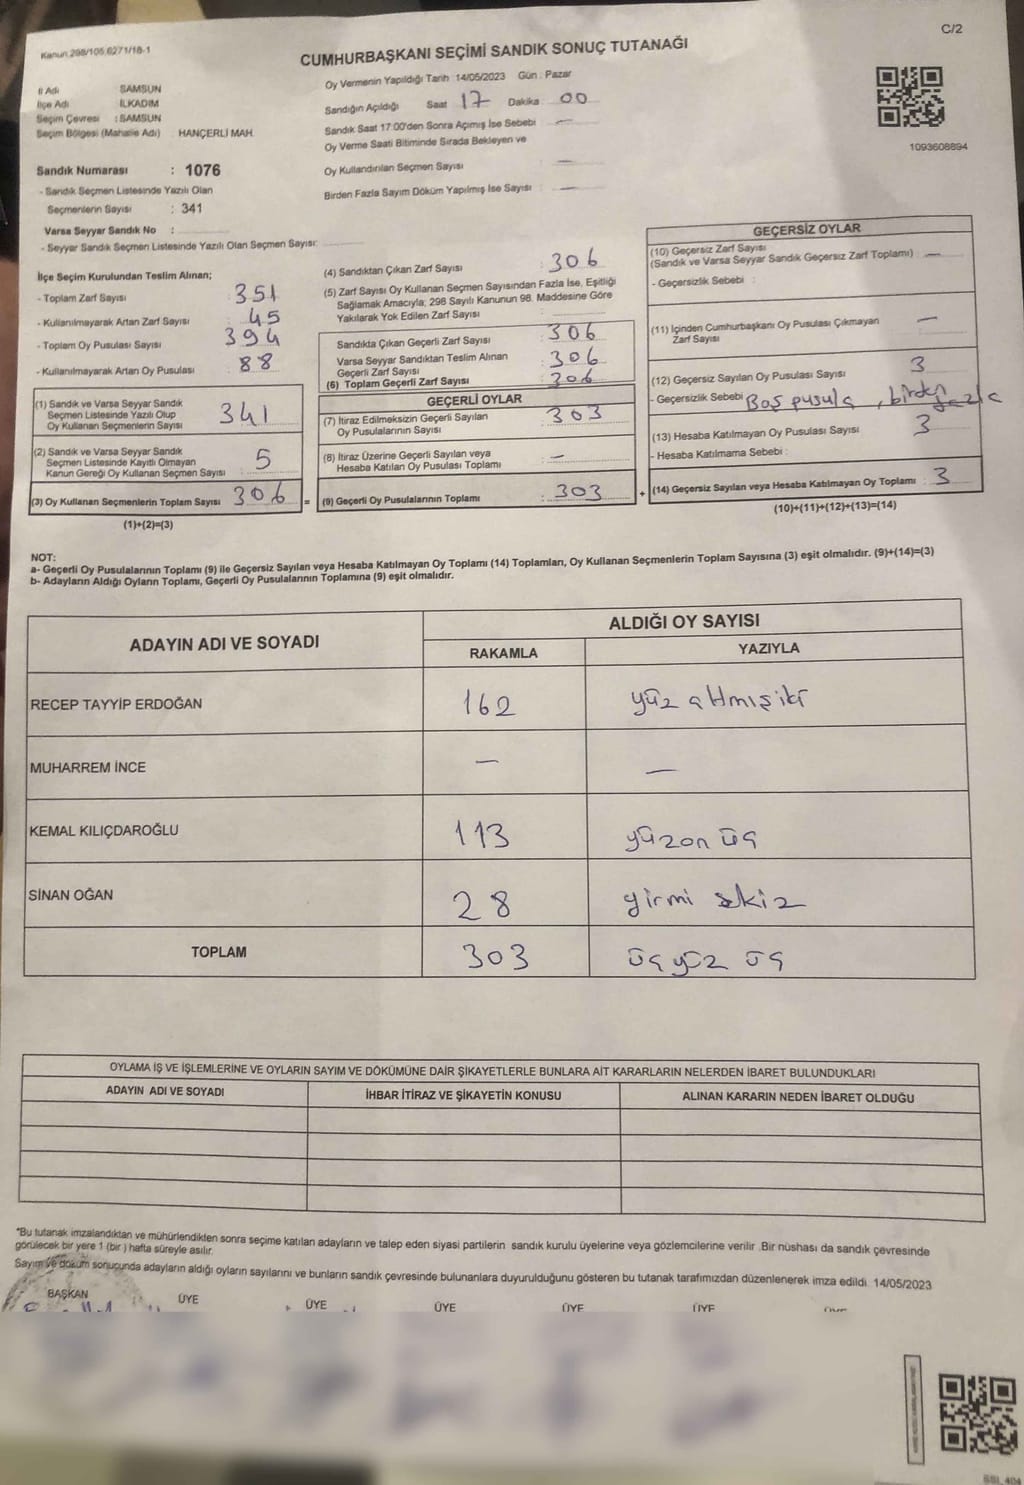 Kanun 298/105,6271/18-1
C/2
CUMHURBAŞKANI SEÇİMİ SANDIK SONUÇ TUTANAĞI
İl Adı SAMSUN
İlçe Adı İLKADIM
Seçim Çevresi : SAMSUN
Seçim Bölgesi (Mahalle Adı) : HANÇERLİ MAH.
Oy Vermenin Yapıldığı Tarih 14/05/2023 Gün : Pazar
Sandığın Açıldığı Saat 17 Dakika 00
Sandık Saat 17:00'den Sonra Açımış İse Sebebi : —
Oy Verme Saati Bitiminde Sırada Bekleyen ve
Oy Kullandırılan Seçmen Sayısı : —
Birden Fazla Sayım Döküm Yapılmış İse Sayısı : —
1093608894
Sandık Numarası : 1076
- Sandık Seçmen Listesinde Yazılı Olan
Seçmenlerin Sayısı : 341
Varsa Seyyar Sandık No :
- Seyyar Sandık Seçmen Listesinde Yazılı Olan Seçmen Sayısı:
İlçe Seçim Kurulundan Teslim Alınan;
- Toplam Zarf Sayısı : 351
- Kullanılmayarak Artan Zarf Sayısı : 45
- Toplam Oy Pusulası Sayısı : 394
- Kullanılmayarak Artan Oy Pusulası : 88
(1) Sandık ve Varsa Seyyar Sandık
Seçmen Listesinde Yazılı Olup
Oy Kullanan Seçmenlerin Sayısı : 341
(2) Sandık ve Varsa Seyyar Sandık
Seçmen Listesinde Kayıtlı Olmayan
Kanun Gereği Oy Kullanan Seçmen Sayısı : 5
(3) Oy Kullanan Seçmenlerin Toplam Sayısı : 306 =
(1)+(2)=(3)
(4) Sandıktan Çıkan Zarf Sayısı : 306
(5) Zarf Sayısı Oy Kullanan Seçmen Sayısından Fazla İse, Eşitliği
Sağlamak Amacıyla; 298 Sayılı Kanunun 98. Maddesine Göre
Yakılarak Yok Edilen Zarf Sayısı :
Sandıkta Çıkan Geçerli Zarf Sayısı : 306
Varsa Seyyar Sandıktan Teslim Alınan
Geçerli Zarf Sayısı : 306
(6) Toplam Geçerli Zarf Sayısı : 306
GEÇERLİ OYLAR
(7) İtiraz Edilmeksizin Geçerli Sayılan
Oy Pusulalarının Sayısı : 303
(8) İtiraz Üzerine Geçerli Sayılan veya
Hesaba Katılan Oy Pusulası Toplamı : —
(9) Geçerli Oy Pusulalarının Toplamı : 303 +
GEÇERSİZ OYLAR
(10) Geçersiz Zarf Sayısı
(Sandık ve Varsa Seyyar Sandık Geçersiz Zarf Toplamı) : —
- Geçersizlik Sebebi :
(11) İçinden Cumhurbaşkanı Oy Pusulası Çıkmayan
Zarf Sayısı —
(12) Geçersiz Sayılan Oy Pusulası Sayısı : 3
- Geçersizlik Sebebi Boş pusula , birden fazla
(13) Hesaba Katılmayan Oy Pusulası Sayısı : 3
- Hesaba Katılmama Sebebi :
(14) Geçersiz Sayılan veya Hesaba Katılmayan Oy Toplamı : 3
(10)+(11)+(12)+(13)=(14)
NOT:
a- Geçerli Oy Pusulalarının Toplamı (9) ile Geçersiz Sayılan veya Hesaba Katılmayan Oy Toplamı (14) Toplamları, Oy Kullanan Seçmenlerin Toplam Sayısına (3) eşit olmalıdır. (9)+(14)=(3)
b- Adayların Aldığı Oyların Toplamı, Geçerli Oy Pusulalarının Toplamına (9) eşit olmalıdır.
ADAYIN ADI VE SOYADI
ALDIĞI OY SAYISI
RAKAMLA YAZIYLA
RECEP TAYYİP ERDOĞAN 162 yüz altmış iki
MUHARREM İNCE — —
KEMAL KILIÇDAROĞLU 113 yüzon üç
SİNAN OĞAN 28 yirmi sekiz
TOPLAM 303 üçyüz üç
OYLAMA İŞ VE İŞLEMLERİNE VE OYLARIN SAYIM VE DÖKÜMÜNE DAİR ŞİKAYETLERLE BUNLARA AİT KARARLARIN NELERDEN İBARET BULUNDUKLARI
ADAYIN ADI VE SOYADI İHBAR İTİRAZ VE ŞİKAYETİN KONUSU ALINAN KARARIN NEDEN İBARET OLDUĞU
*Bu tutanak imzalandıktan ve mühürlendikten sonra seçime katılan adayların ve talep eden siyasi partilerin sandık kurulu üyelerine veya gözlemcilerine verilir .Bir nüshası da sandık çevresinde
görülecek bir yere 1 (bir ) hafta süreyle asılır.
Sayım ve döküm sonucunda adayların aldığı oyların sayılarını ve bunların sandık çevresinde bulunanlara duyurulduğunu gösteren bu tutanak tarafımızdan düzenlenerek imza edildi. 14/05/2023
BAŞKAN ÜYE ÜYE ÜYE ÜYE ÜYE